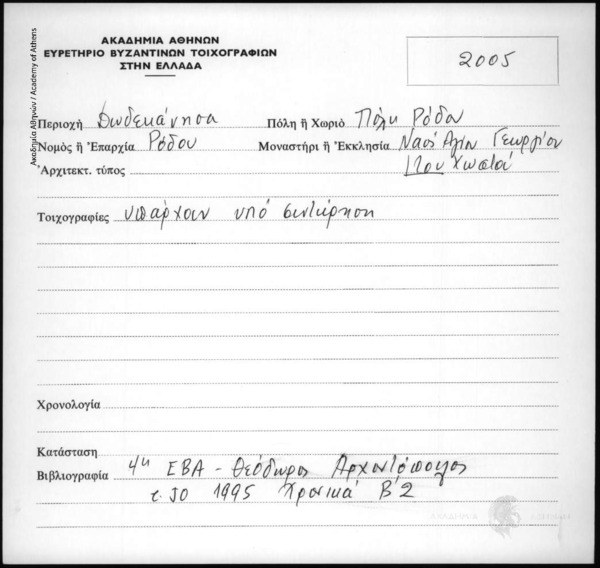 ΑΚΑΔΗΜΙΑ ΑΘΗΝΩΝ
ΕΥΡΕΤΗΡΙΟ ΒΥΖΑΝΤΙΝΩΝ ΤΟΙΧΟΓΡΑΦΙΩΝ
ΣΤΗΝ ΕΛΛΑΔΑ
2005
Ακαδημία Αθηνών / Academy of Athens
Περιοχὴ Δωδεκάνησα Πόλη ἢ Χωριὸ Πόλη Ρόδου
Νομὸς ἢ Ἐπαρχία Ρόδου Μοναστήρι ἢ Ἐκκλησία Ναός Αγίου Γεωργίου
Ἀρχιτεκτ. τύπος του Χωστού
Τοιχογραφίες υπάρχουν υπό συντήρηση
Χρονολογία
Κατάσταση
Βιβλιογραφία 4η ΕΒΑ - Θεόδωρος Αρχοντόπουλος
τ. 50 1995 Χρονικά Β'2